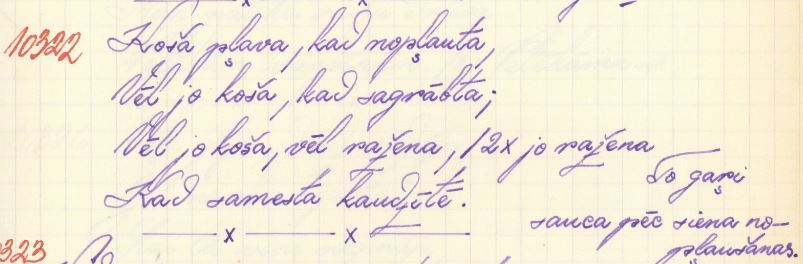 10322 Koša pļava, kad nopļauta,
Vēl jo koša, kad sagrābta;
Vēl jo koša, vēl ražena, /2x jo ražena
Kad samesta kaudzītē.
To gaŗi
sauca pēc siena no-
pļaušanas.
x x
10323